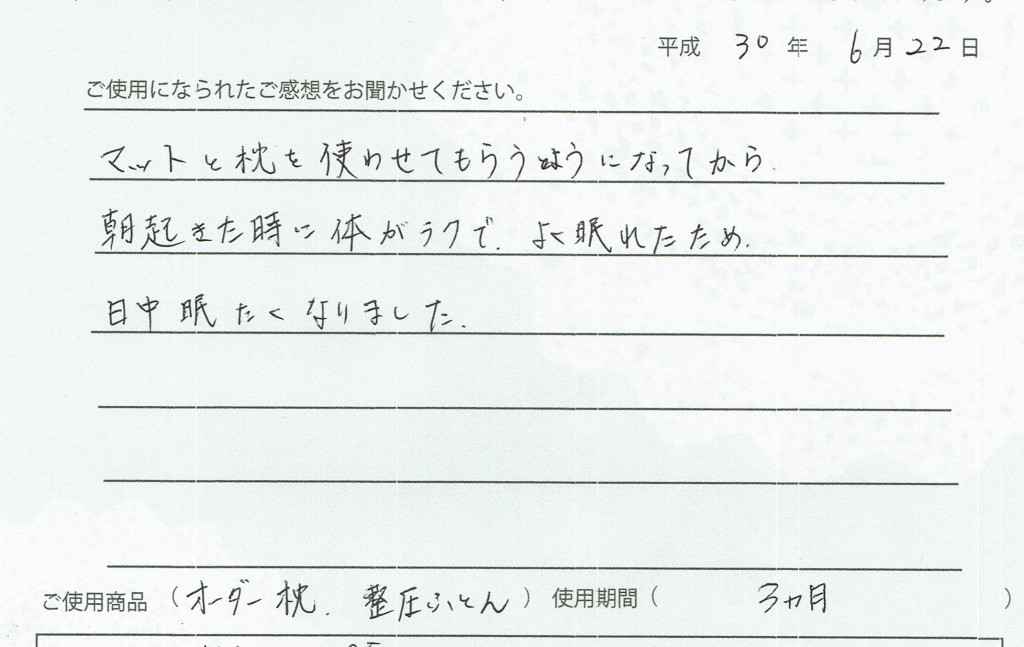 平成 30 年 6 月 22 日
ご使用になられたご感想をお聞かせください。
マットと枕を使わせてもらうようになってから、
朝起きた時に体がラクで、よく眠れたため、
日中眠たくなりました。
ご使用商品(オーダー枕、整圧ふとん)使用期間(3ヵ月)